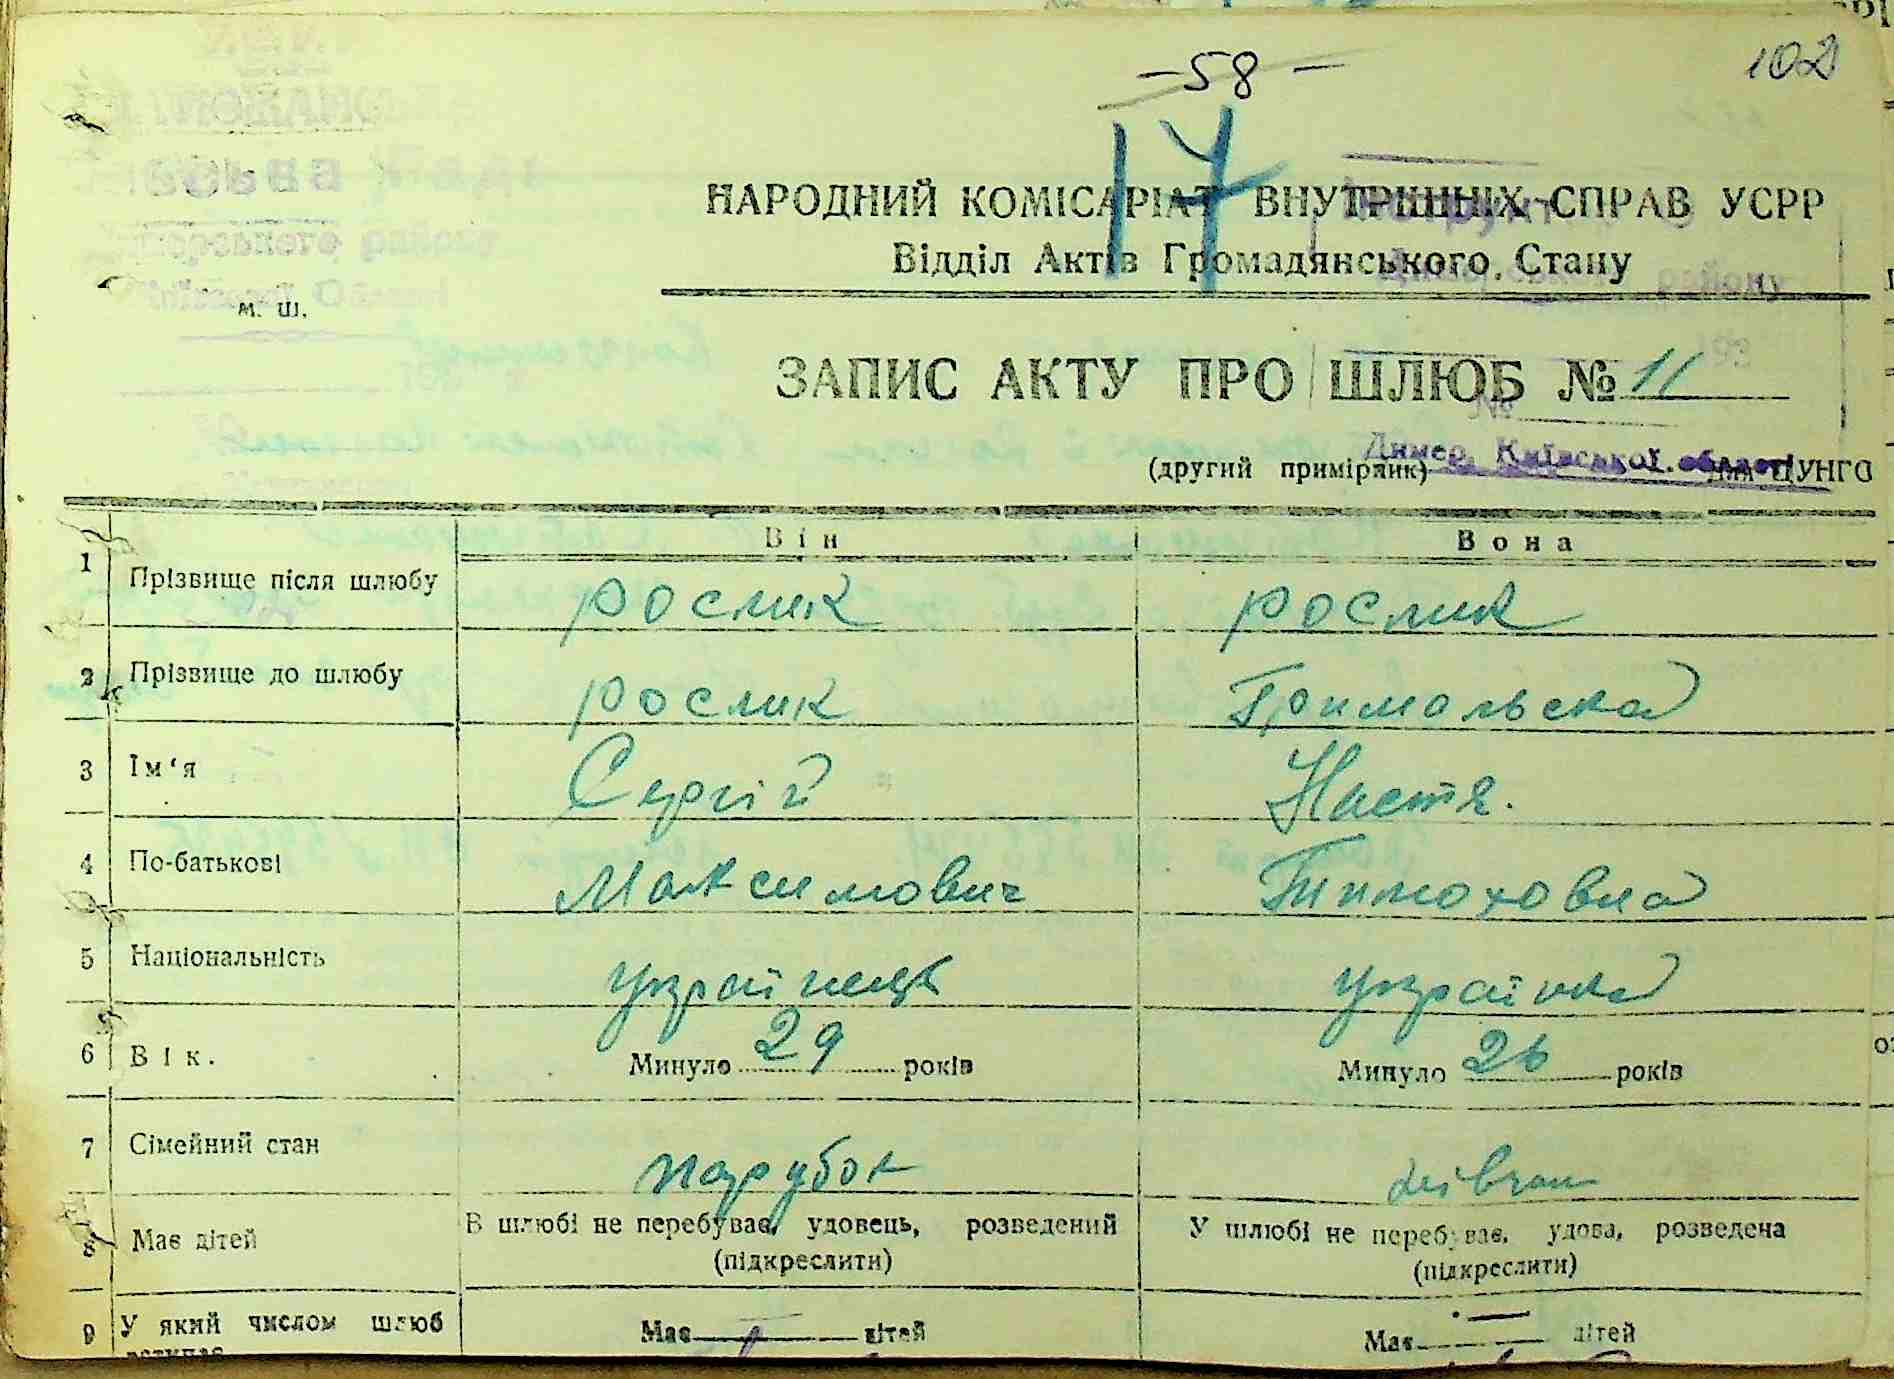 102
– 58 –
17
НАРОДНИЙ КОМІСАРІАТ ВНУТРІШНІХ СПРАВ УСРР
Відділ Актів Громадянського Стану
району
М. Ш.
ЗАПИС АКТУ ПРО ШЛЮБ № 11
193
№
Димер, Київської області
(другий примірник) для ЦУНГО
Він Вона
1 Прізвище після шлюбу Рослик Рослик
2 Прізвище до шлюбу Рослик Гримальська
3 Ім'я Сергій Настя.
4 По-батькові Максимович Тимоховна
5 Національність українець українка
6 Вік. Минуло 29 років Минуло 26 років
7 Сімейний стан парубок дівчина
8 Має дітей В шлюбі не перебуває, удовець, розведений У шлюбі не перебуває, удова, розведена
(підкреслити) (підкреслити)
9 У який числом шлюб Має — дітей Має — дітей
вступає